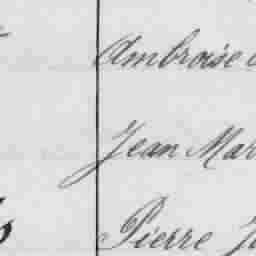 Ambroise
Jean Mar
Pierre J